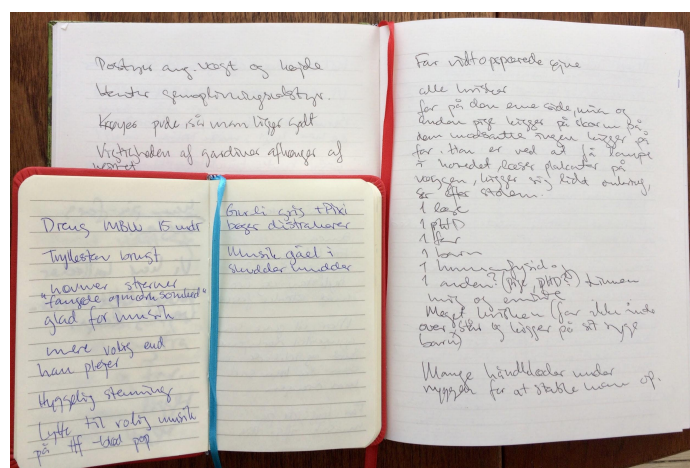 Postyr ang. vægt og højde
Henter genoplivningsudstyr.
Kræver pude når man ligger godt
Vigtigheden af gardiner afhænger af
Far vidtopspærede øjne
alle hvisker
far på den ene side, min og
anden pige kigger på skærm på
den modsatte ingen kigger på
far. Han er ved at få lampe
i hovedet, læser plakater på
væggen, kigger sig lidt omkring,
efter stolen.
1 læge
1 phD
1 far
1 barn
1
1 anden? (pige, PHD?)
mig og
Meget hvisken (far ikke
over står og kigger på sit syge
barn)
Mange håndklæder under
ryggen for at stable ham op.
Dreng MBW 15 mdr
Tryllestav brugt
hovner stjerner
"fangede opmærksomhed"
glad for musik
mere rolig end
han plejer
Hyggelig stemning
Lytte til rolig musik
på tlf - pop
Gurli gris + Pixi
bøger distraherer
Musik gået i
skudder mudder